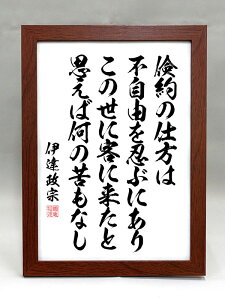 倹約の仕方は
不自由を忍ぶにあり
この世に客に来たと
思えば何の苦もなし
伊達政宗